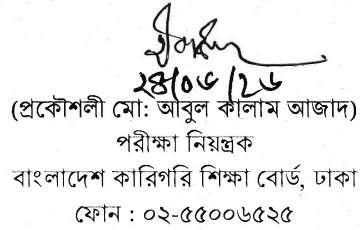 ২৪/০৬/২৬
(প্রকৌশলী মো: আবুল কালাম আজাদ)
পরীক্ষা নিয়ন্ত্রক
বাংলাদেশ কারিগরি শিক্ষা বোর্ড, ঢাকা
ফোন : ০২-৫৫০০৬৫২৫